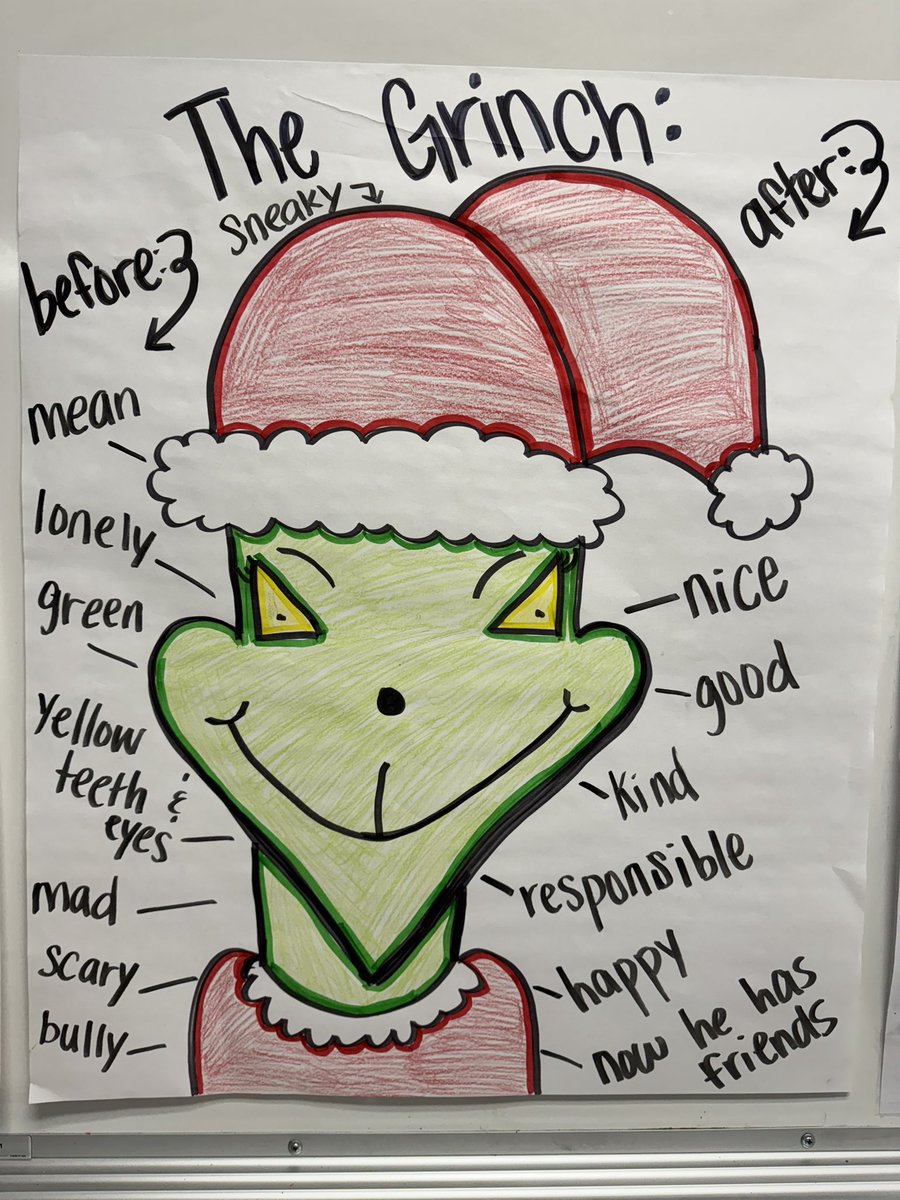 The Grinch:
Sneaky
before:
mean
lonely
green
yellow
teeth &
eyes
mad
scary
bully
after:
nice
good
kind
responsible
happy
now he has
friends